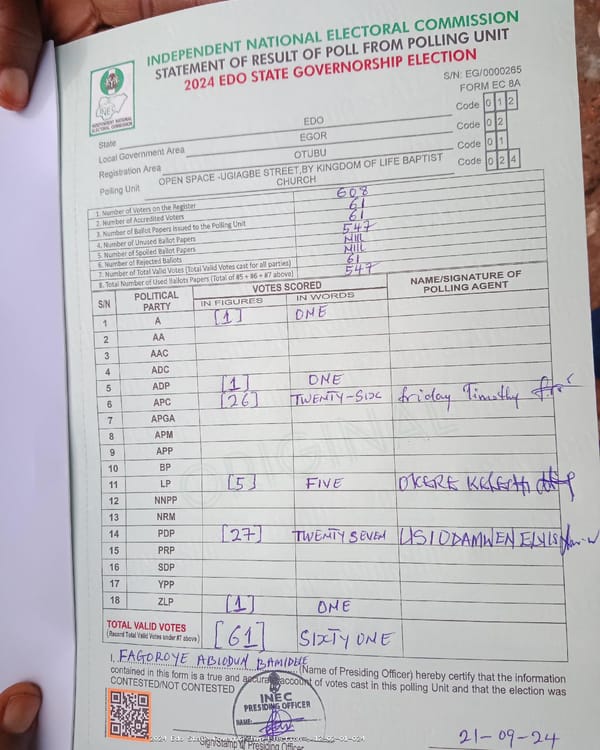 INDEPENDENT NATIONAL ELECTORAL COMMISSION
STATEMENT OF RESULT OF POLL FROM POLLING UNIT
2024 EDO STATE GOVERNORSHIP ELECTION
S/N: EG/0000265
FORM EC 8A
INEC
INDEPENDENT NATIONAL ELECTORAL COMMISSION
State EDO Code 0 1 2
Local Government Area EGOR Code 0 2
Registration Area OTUBU Code 0 1
Polling Unit OPEN SPACE -UGIAGBE STREET,BY KINGDOM OF LIFE BAPTIST CHURCH Code 0 2 4
1. Number of Voters on the Register 608
2. Number of Accredited Voters 61
3. Number of Ballot Papers Issued to the Polling Unit 61
4. Number of Unused Ballot Papers 547
5. Number of Spoiled Ballot Papers Nill
6. Number of Rejected Ballots Nill
7. Number of Total Valid Votes (Total Valid Votes cast for all parties) 61
8. Total Number of Used Ballots Papers (Total of #5 + #6 + #7 above) 547
S/N POLITICAL PARTY VOTES SCORED NAME/SIGNATURE OF POLLING AGENT
IN FIGURES IN WORDS
1 A [1] ONE
2 AA
3 AAC
4 ADC
5 ADP [1] ONE
6 APC [26] TWENTY-SIX friday Timothy
7 APGA
8 APM
9 APP
10 BP
11 LP [5] FIVE OKERE
12 NNPP
13 NRM
14 PDP [27] TWENTY SEVEN
15 PRP
16 SDP
17 YPP
18 ZLP [1] ONE
ORIGINAL
TOTAL VALID VOTES [61] SIXTY ONE
(Record Total Valid Votes under #7 above)
I, FAGOROYE ABIODUN BAMIDELE (Name of Presiding Officer) hereby certify that the information
contained in this form is a true and accurate account of votes cast in this polling Unit and that the election was
CONTESTED/NOT CONTESTED
INEC
PRESIDING OFFICER
NAME:
Sign/Stamp of Presiding Officer
21-09-24